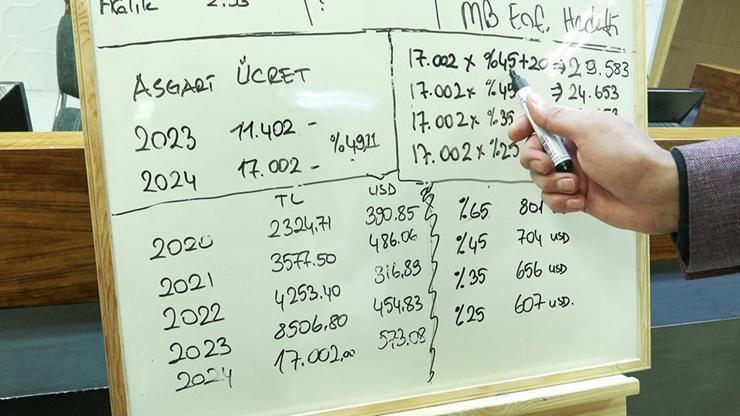 MB Enf. Hedefi
17.002 x %45+20 ⇒ 29.583
17.002 x %45 ⇒ 24.653
17.002 x %35
17.002 x %25
ASGARİ ÜCRET
2023 11.402 -
%4911
2024 17.002 -
TL USD
2020 2324.71 390.85
2021 3577.50 486.06
2022 4253.40 316.83
2023 8506.80 454.83
2024 17.002.00 573.08
%65
%45 704 USD
%35 656 USD
%25 607 USD.